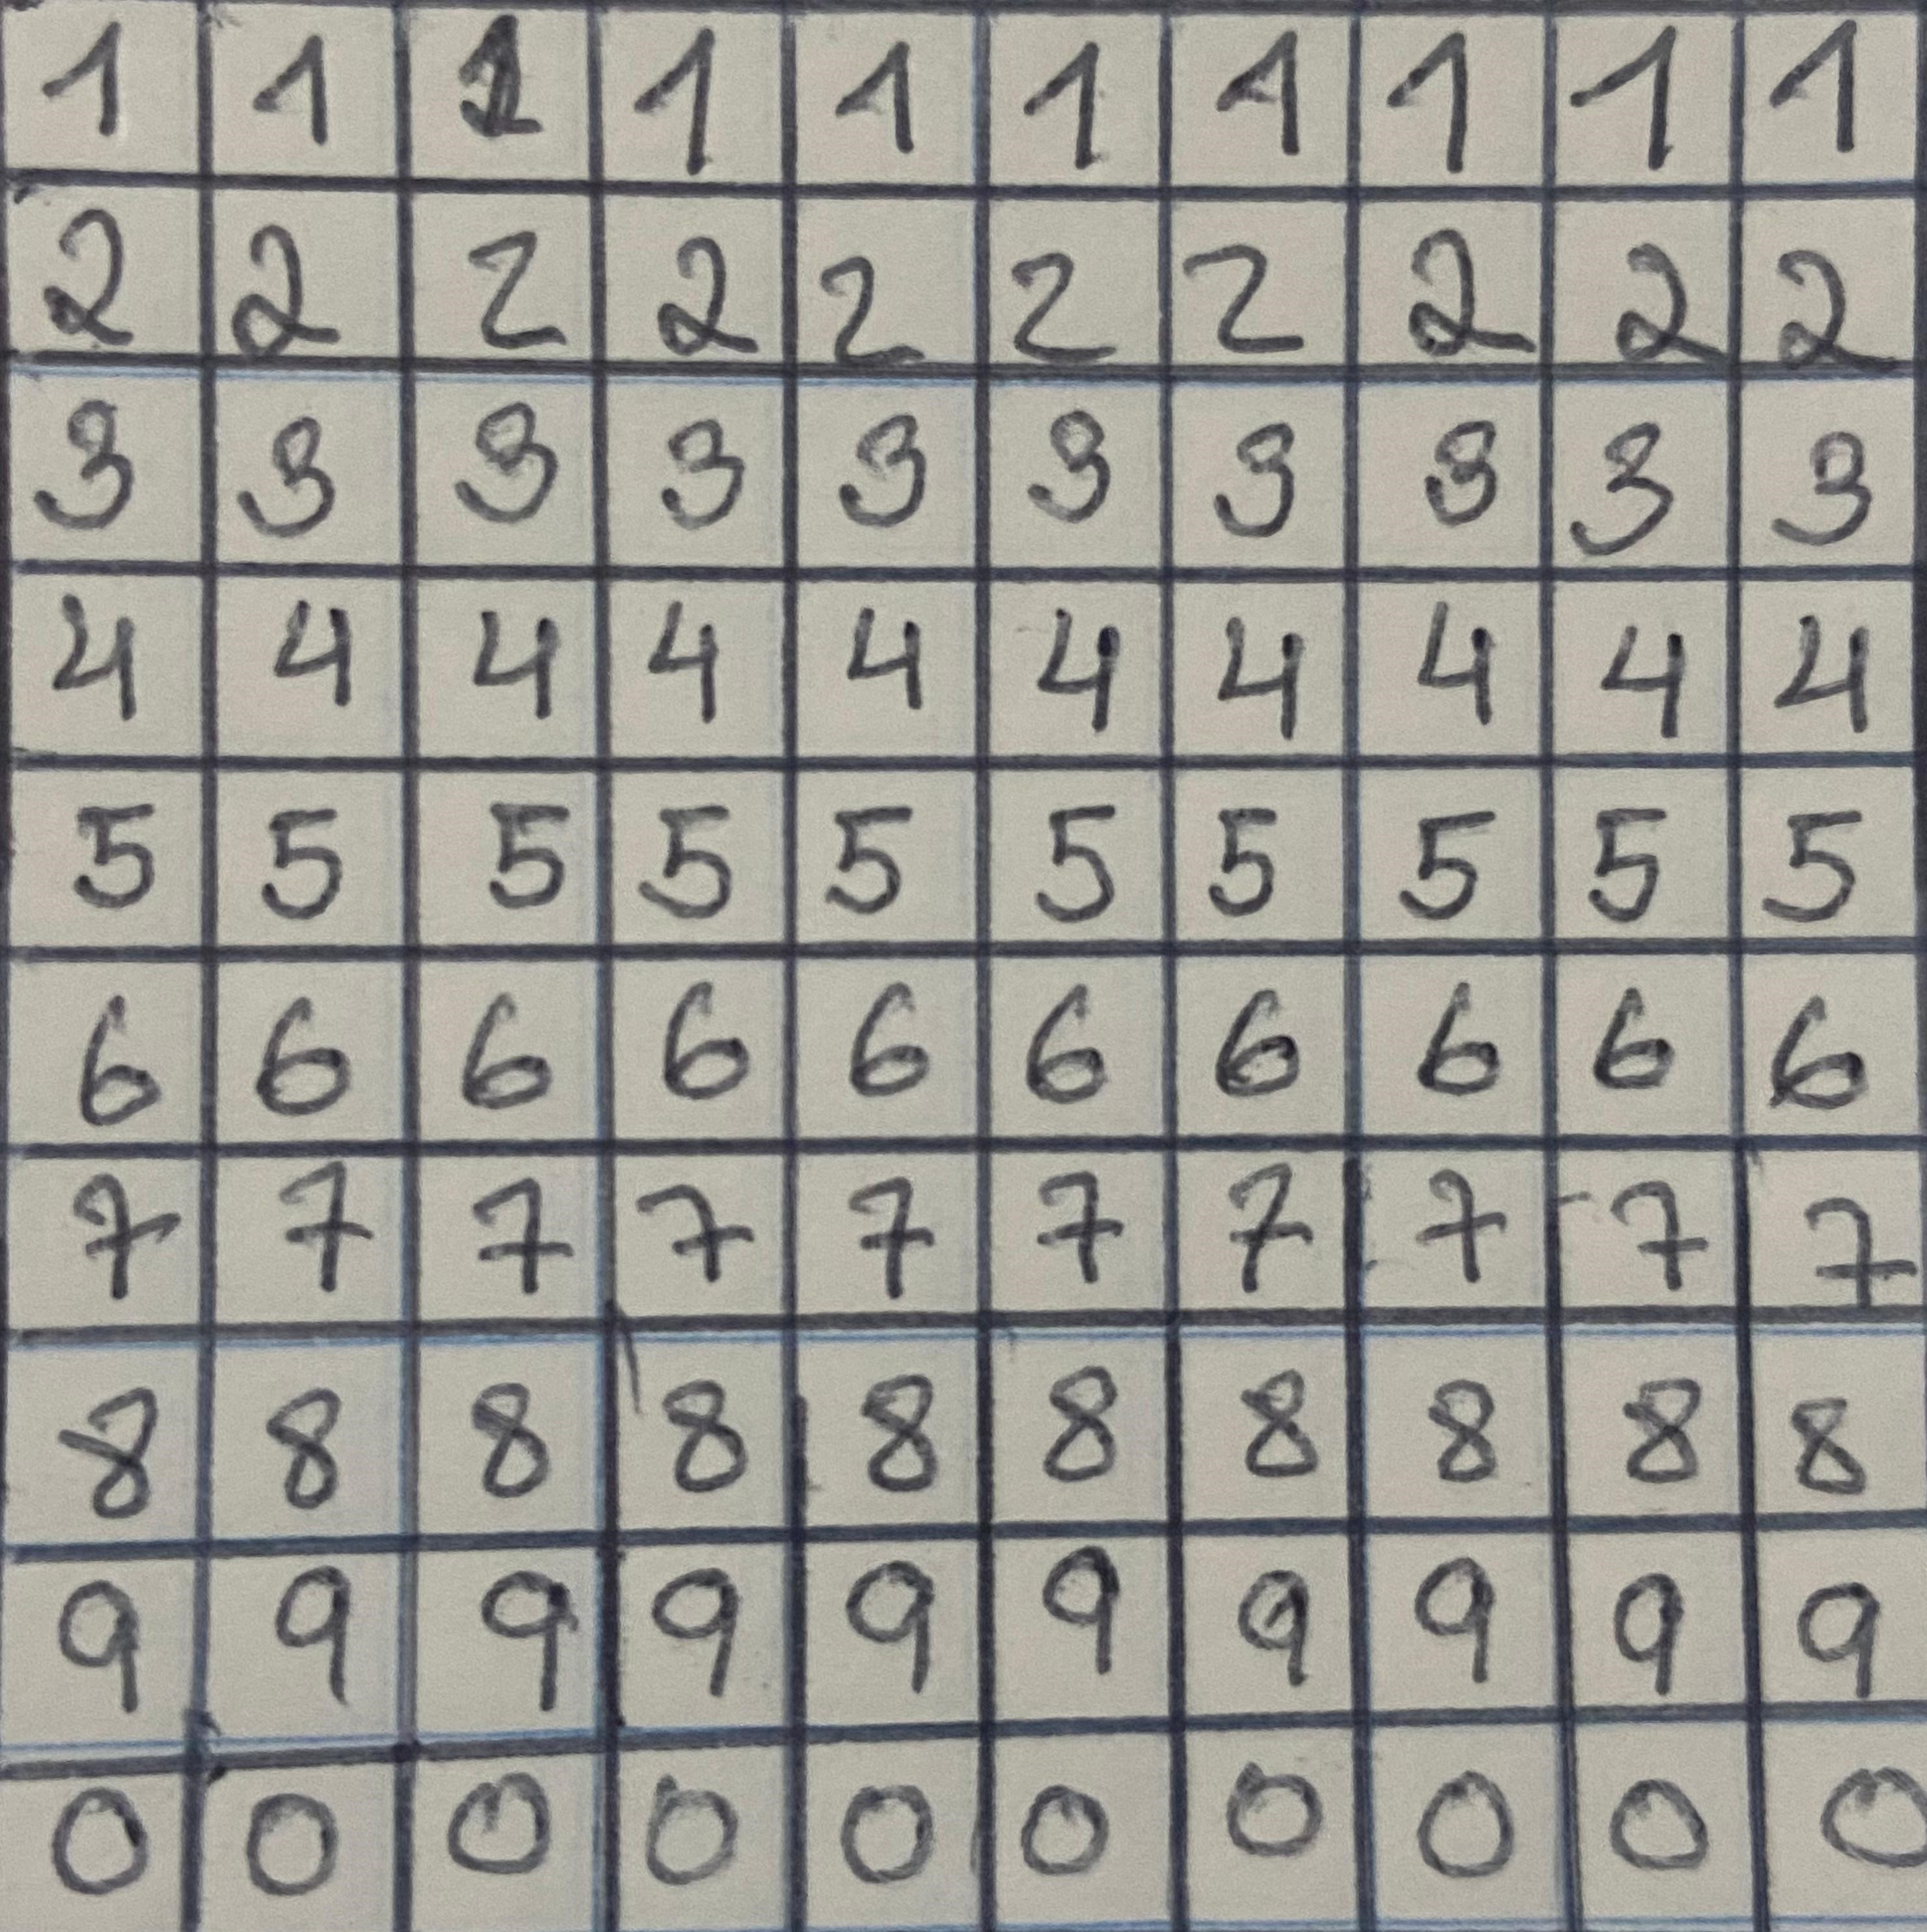 1 1 1 1 1 1 1 1 1
2 2 2 2 2 2 2 2 2 2
3 3 3 3 3 3 3 3 3 3
4 4 4 4 4 4 4 4 4 4
5 5 5 5 5 5 5 5 5 5
6 6 6 6 6 6 6 6 6 6
7 7 7 7 7 7 7 7 7 7
8 8 8 8 8 8 8 8 8 8
9 9 9 9 9 9 9 9 9 9
0 0 0 0 0 0 0 0 0 0